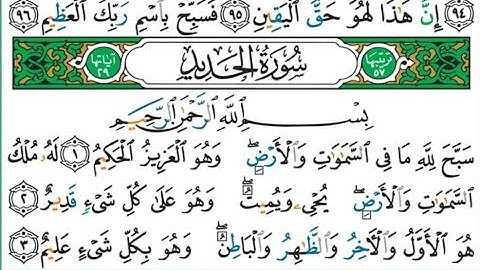 ٩٤ إِنَّ هَٰذَا لَهُوَ حَقُّ الْيَقِينِ ٩٥ فَسَبِّحْ بِاسْمِ رَبِّكَ الْعَظِيمِ ٩٦
ترتيبها ٥٧ سُورَةُ الْحَدِيدِ آياتها ٢٩
بِسْمِ اللَّهِ الرَّحْمَٰنِ الرَّحِيمِ
سَبَّحَ لِلَّهِ مَا فِي السَّمَاوَاتِ وَالْأَرْضِ ۖ وَهُوَ الْعَزِيزُ الْحَكِيمُ ١ لَهُ مُلْكُ
السَّمَاوَاتِ وَالْأَرْضِ ۖ يُحْيِي وَيُمِيتُ ۖ وَهُوَ عَلَىٰ كُلِّ شَيْءٍ قَدِيرٌ ٢
هُوَ الْأَوَّلُ وَالْآخِرُ وَالظَّاهِرُ وَالْبَاطِنُ ۖ وَهُوَ بِكُلِّ شَيْءٍ عَلِيمٌ ٣